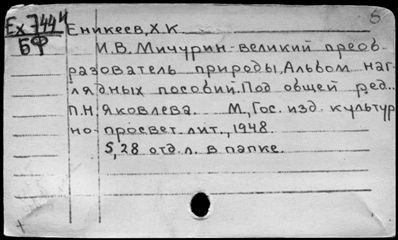 Ех 7444 Еникеев, Х.К 5
БФ И.В. Мичурин-великий преоб-
разователь природы. Альбом наг-
лядных пособий. Под общей ред.
П.Н. Яковлева. М., Гос. изд. культур
но-просвет. лит., 1948.
5, 28 отд. л. в папке.